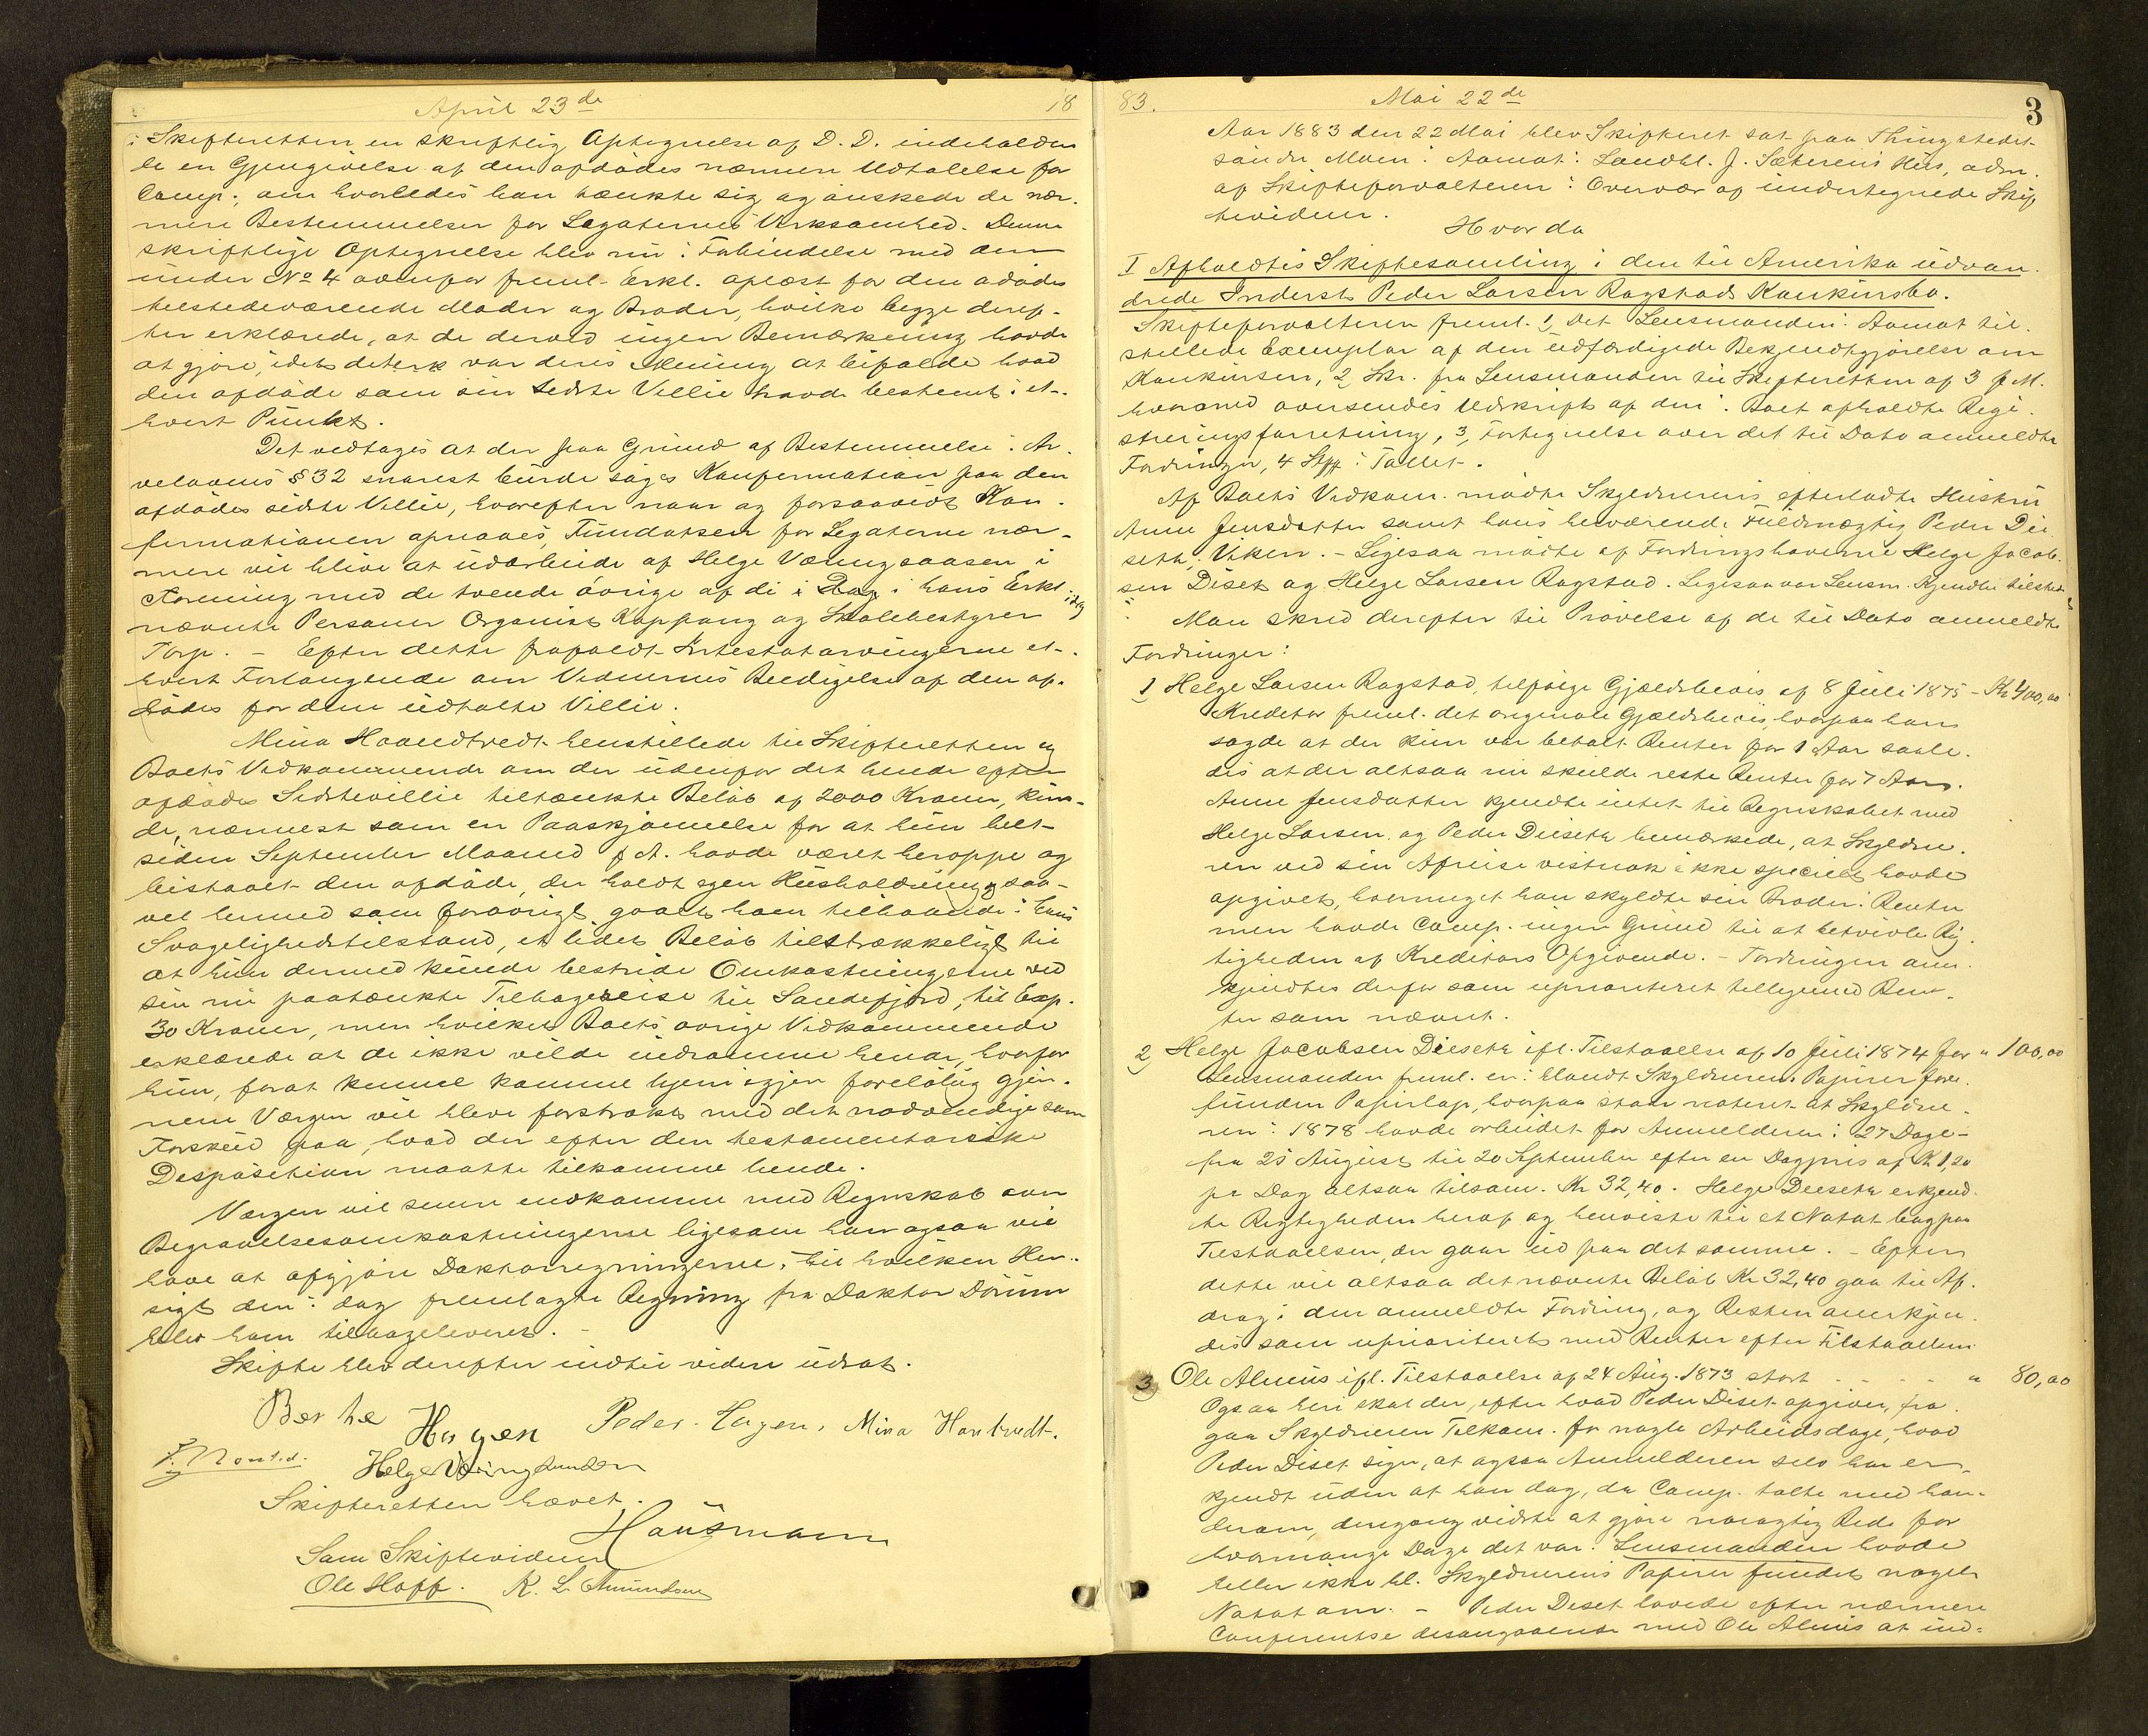 April 23de 18
i Skifteretten en skriftlig Optegnelse af D. D. indeholden
de en Gjengivelse af den afdødes nærmere Udtalelse for
Comp., om hvorledes han tænkte sig og ønskede de nær.
mere Bestemmelser for Legaternes Virksomhed. Denne
skriftlige Optegnelse blev nu i Forbindelse med den
under No 4 ovenfor freml. Erkl. oplæst for den afdødes
tilstedeværende Moder og Broder, hvilke begge deref-
ter erklærede, at de derved ingen Bemærkning havde
at gjøre, idet det var deres Mening at bifalde hvad
den afdøde som sin sidste Villie havde bestemt i et-
hvert Punkt.
Det vedtages at der paa Grund af Bestemmelse i Ar.
velovens § 32 snarest burde søges Konfirmation paa den
afdødes sidste Villie, hvorefter naar og forsaavidt Kon-
firmationen opnaaes, Fundatsen for Legaterne nær-
mere vil blive at udarbeide af Helge Væringsaasen i
Forening med de tvende øvrige af de i Dag i hans Erkl. idag
nævnte Personer Organist Koppang og Skolebestyrer
Torp. - Efter dette frafaldt Intestatarvingerne et-
hvert Forlangende om Vidnernes Beedigelse af den af-
dødes for dem udtalte Villie.
Mina Haandtvedt henstillede til Skifteretten og
Boets Vedkommende om der udenfor det hende efter
afdødes Sidstevillie tiltænkte Beløb af 2000 Kroner, kun-
de, nærmest som en Paaskjønnelse for at hun helt
siden September Maaned f. A. havde været heroppe og
bistaaet den afdøde, der holdt egen Husholdning og saa-
vel hermed som forøvrigt gaaet ham tilhaande i hans
Svagelighedstilstand, et lidet Beløb tilstrækkeligt til
at hun dermed kunde bestride Omkostningerne ved
sin nu paatænkte Tilbagereise til Sandefjord, til Exp.
30 Kroner, men hvilket Boets øvrige Vedkommende
erklærede at de ikke vilde indrømme hende, hvorfor
hun, forat kunne komme hjem igjen foreløbig gjen-
nem Værgen vil blive forstrakt med det nødvendige som
Forskud paa, hvad der efter den testamentariske
Desposition maatte tilkomme hende.
Værgen vil senere indkomme med Regnskab over
Begravelsesomkostningerne ligesom han ogsaa vil
have at afgjøre Doktorregningerne, til hvilken Hen-
sigt den i dag fremlagte Regning fra Doktor Dørum
blev ham tilbageleveret. -
Skifte blev derefter indtil videre udsat.
Berthe Hagen Peder Hagen, Mina Hantvedt.
Helge Væringsaasen
Skifteretten hævet.
Hausmann
Som Skiftevidner
Ole Hoff. K. L. Amundsen
83. Mai 22de 3
Aar 1883 den 22 Mai blev Skifteret sat paa Thingstedet
søndre Moen i Aamot i Landhl. J. Sæterens Hus, adm.
af Skifteforvalteren i Overvær af undertegnede Skif
tevidner.
Hvorda
I Afholdtes Skiftesamling i den til Amerika udvan.
drede Inderst Peder Larsen Rogstads Konkursbo.
Skifteforvalteren freml. 1, Det Lensmanden i Aamot til.
stillede Exemplar af den udfærdigede Bekjendtgjørelse om
Konkursen, 2, Skr. fra Lensmanden til Skifteretten af 3 f. M.
hvormed oversendes Udskrift af den i Boet afholdte Regi.
streringsforretning, 3, Fortegnelse over det til Dato anmeldte
Fordringer, 4 Stk i Tallet.
Af Boets Vedkom. mødte Skyldnerens efterladte Hustru
Anne Jensdatter samt hans herværende Fuldmægtig Peder Die
seth, Viken. - Ligesaa mødte af Fordringshaverne Helge Jacob.
sen Diset og Helge Larsen Rogstad. Ligesaa var Lensm. Kjendlie tilstede
Man skred derefter til Prøvelse af de til Dato anmeldte
Fordringer:
1 Helge Larsen Rogstad, tilfølge Gjældsbevis af 8 Juli 1875 - Kr 400,00
Kreditor freml. det originale Gjældsbevis, hvorpaa han
sagde at der kun var betalt Renter for 1 Aar saale.
des at der altsaa nu skulde reste Renter for 7 Aar.
Anne Jensdatter kjendte intet til Regnskabet med
Helge Larsen, og Peder Dieseth bemærkede, at Skyldne.
ren ved sin Afreise vistnok ikke specielt havde
opgivet, hvormeget han skyldte sin Broder i Renter
men havde Comp. ingen Grund til at betvivle Rig.
tigheden af Kreditors Opgivende. - Fordringen aner.
kjendtes derfor som uprioriteret tilligemed Ren-
ter som nævnt.
2, Helge Jacobsen Dieseth ifl. Tilstaaelse af 10 Juli 1874 for " 100,00
Lensmanden freml. en i blandt Skyldnerens Papirer fore.
funden Papirlap, hvorpaa staar noteret at Skyldne.
ren i 1878 havde arbeidet for Anmelderen i 27 Dage -
fra 21 August til 20 September efter en Dagpris af Kr 1,20
pr Dag altsaa tilsam. Kr 32,40. Helge Dieseth erkjend.
te Rigtigheden heraf og henviste til et Notat bagpaa
Tilstaaelsen, der gaar ud paa det samme. - Efter
dette vil altsaa det nævnte Beløb Kr 32,40 gaa til Af.
drag i den anmeldte Fordring, og Resten anerkjen.
des som uprioriteret med Renter efter Tilstaaelsen
3, Ole Alme̊us ifl. Tilstaaelse af 24 Aug. 1873 stort - - - - " 80,00
Ogsaa heri skal der, efter hvad Peder Diset opgiver, fra.
gaa Skyldneren Tilkom. for nogle Arbeidsdage, hvad
Peder Diset siger, at ogsaa Anmelderen selv har er-
kjendt uden at han dog, da Comp. talte med ham
derom, dengang vidste at gjøre nøiagtig Rede for
hvormange Dage det var. Lensmanden havde
heller ikke bl. Skyldnerens Papirer fundet noget
Notat om. - Peder Diset lovede efter nærmere
Conferentse desangaaende med Ole Almeus at ind-